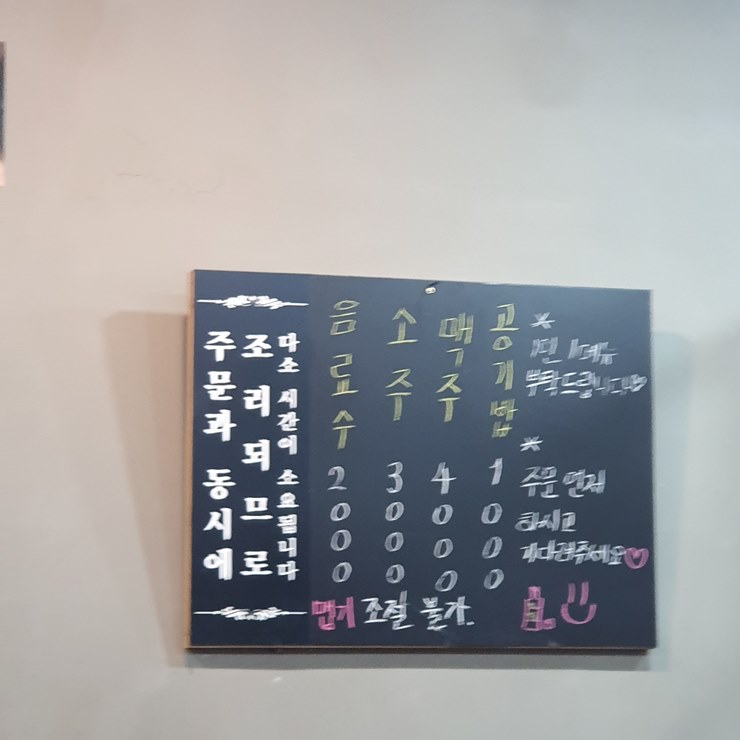 주문과 동시에
조리되므로
다소 시간이 소요됩니다
음료수 2000
소주 3000
맥주 4000
공기밥 1000
* 1인 1메뉴
부탁드립니다♡
* 주문 먼저
하시고
기다려주세요♡
맵기 조절 불가.